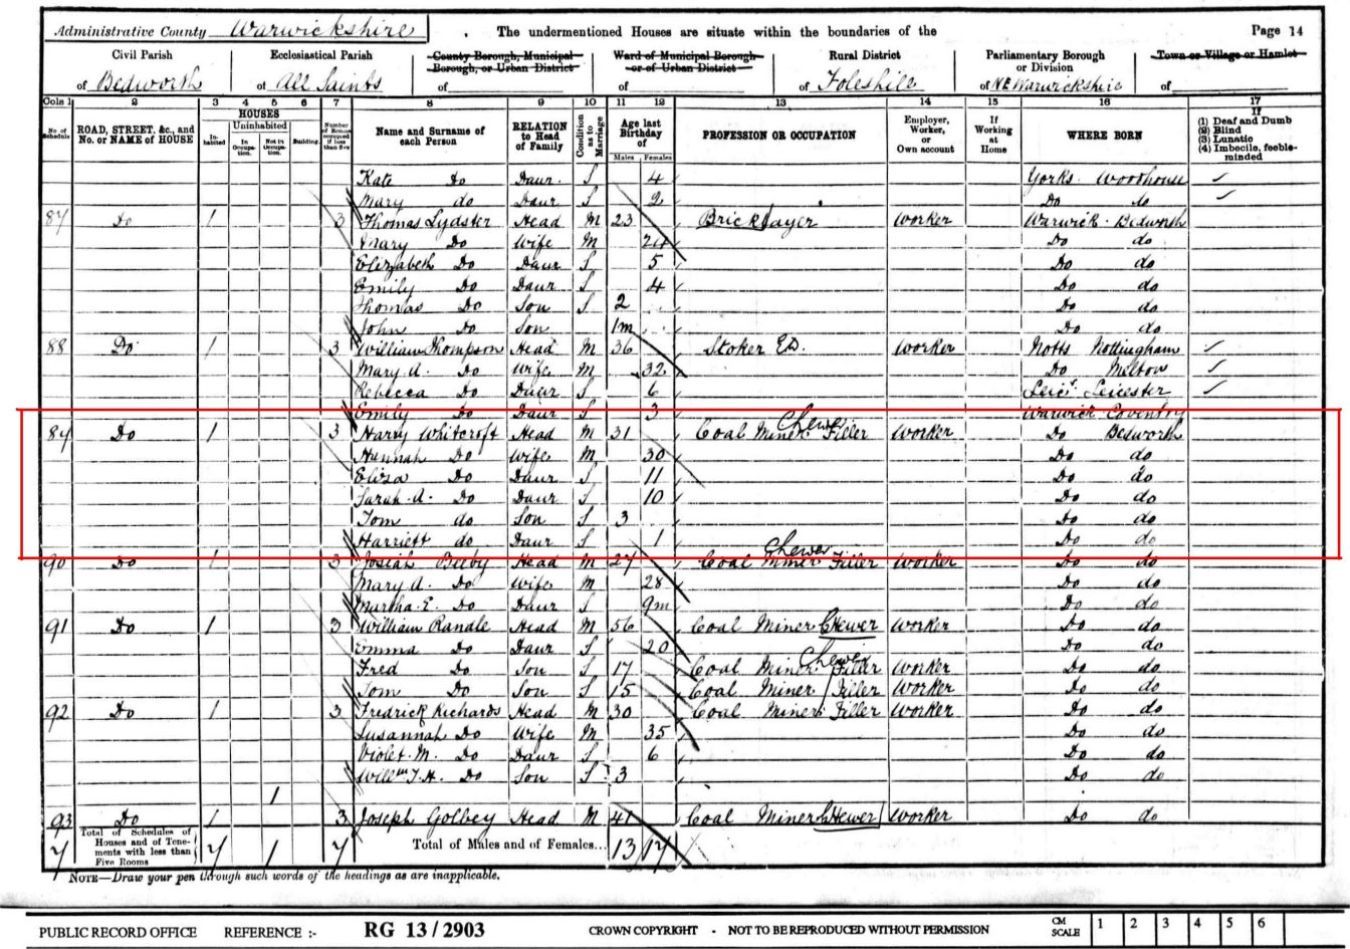 Administrative County Warwickshire . The undermentioned Houses are situate within the boundaries of the Page 14
Civil Parish Ecclesiastical Parish County Borough, Municipal Borough, or Urban District Ward of Municipal Borough or of Urban District Rural District Parliamentary Borough or Division Town or Village or Hamlet
of Bedworth of All Saints of of of Foleshill of N E Warwickshire of
Cols 1 2 3 4 5 6 7 8 9 10 11 12 13 14 15 16 17
No. of Schedule ROAD, STREET, &c., and No. or NAME of HOUSE HOUSES Inhabited Uninhabited In Occupation. Not in Occupation. Building. Number of Rooms occupied if less than five Name and Surname of each Person RELATION to Head of Family Condition as to Marriage Age last Birthday of Males Females PROFESSION OR OCCUPATION Employer, Worker, or Own account If Working at Home WHERE BORN If (1) Deaf and Dumb (2) Blind (3) Lunatic (4) Imbecile, feeble-minded
Kate Do Daur. S 4 Yorks Woodhouse
Mary do Daur S 2 Do do
87 Do 1 3 Thomas Lydster Head M 23 Bricklayer Worker Warwick Bedworth
Mary Do Wife M 24 Do do
Elizabeth Do Daur S 5 Do do
Emily Do Daur S 4 Do do
Thomas Do Son S 2 Do do
John Do Son 1m Do do
88 Do 1 3 William Thompson Head M 36 Stoker Worker Notts Nottingham
Mary A. Do Wife M 32 Do Melton
Rebecca Do Daur S 6 Leics. Leicester
Emily Do Daur S 3 Warwick Coventry
89 Do 1 3 Harry Whitcroft Head M 31 Coal Miner Hewer Filler Worker Do Bedworth
Hannah Do Wife M 30 Do do
Eliza Do Daur S 11 Do do
Sarah A. Do Daur S 10 Do do
Tom do Son S 3 Do do
Harriett do Daur S 1 Do do
90 Do 1 3 Josiah Beeby Head M 27 Coal Miner Hewer Filler Worker Do do
Mary A. Do Wife M 28 Do do
Martha E. Do Daur S 9m Do do
91 Do 1 3 William Randle Head M 56 Coal Miner Hewer Worker Do do
Emma Do Daur S 20 Do do
Fred Do Son S 17 Coal Miner Hewer Filler Worker Do do
Tom Do Son S 15 Coal Miner Filler Worker Do do
92 Do 1 3 Fredrick Richards Head M 30 Coal Miner Filler Worker Do do
Susannah Do Wife M 35 Do do
Violet M. Do Daur S 6 Do do
Willm T.H. Do Son S 3 Do do
1
93 Do 1 3 Joseph Golbey Head M 41 Coal Miner Hewer Worker Do do
7 Total of Schedules of Houses and of Tenements with less than Five Rooms 7 1 7 Total of Males and of Females... 13 17
NOTE—Draw your pen through such words of the headings as are inapplicable.
PUBLIC RECORD OFFICE REFERENCE :- RG 13/2903 CROWN COPYRIGHT - NOT TO BE REPRODUCED WITHOUT PERMISSION CM SCALE 1 2 3 4 5 6